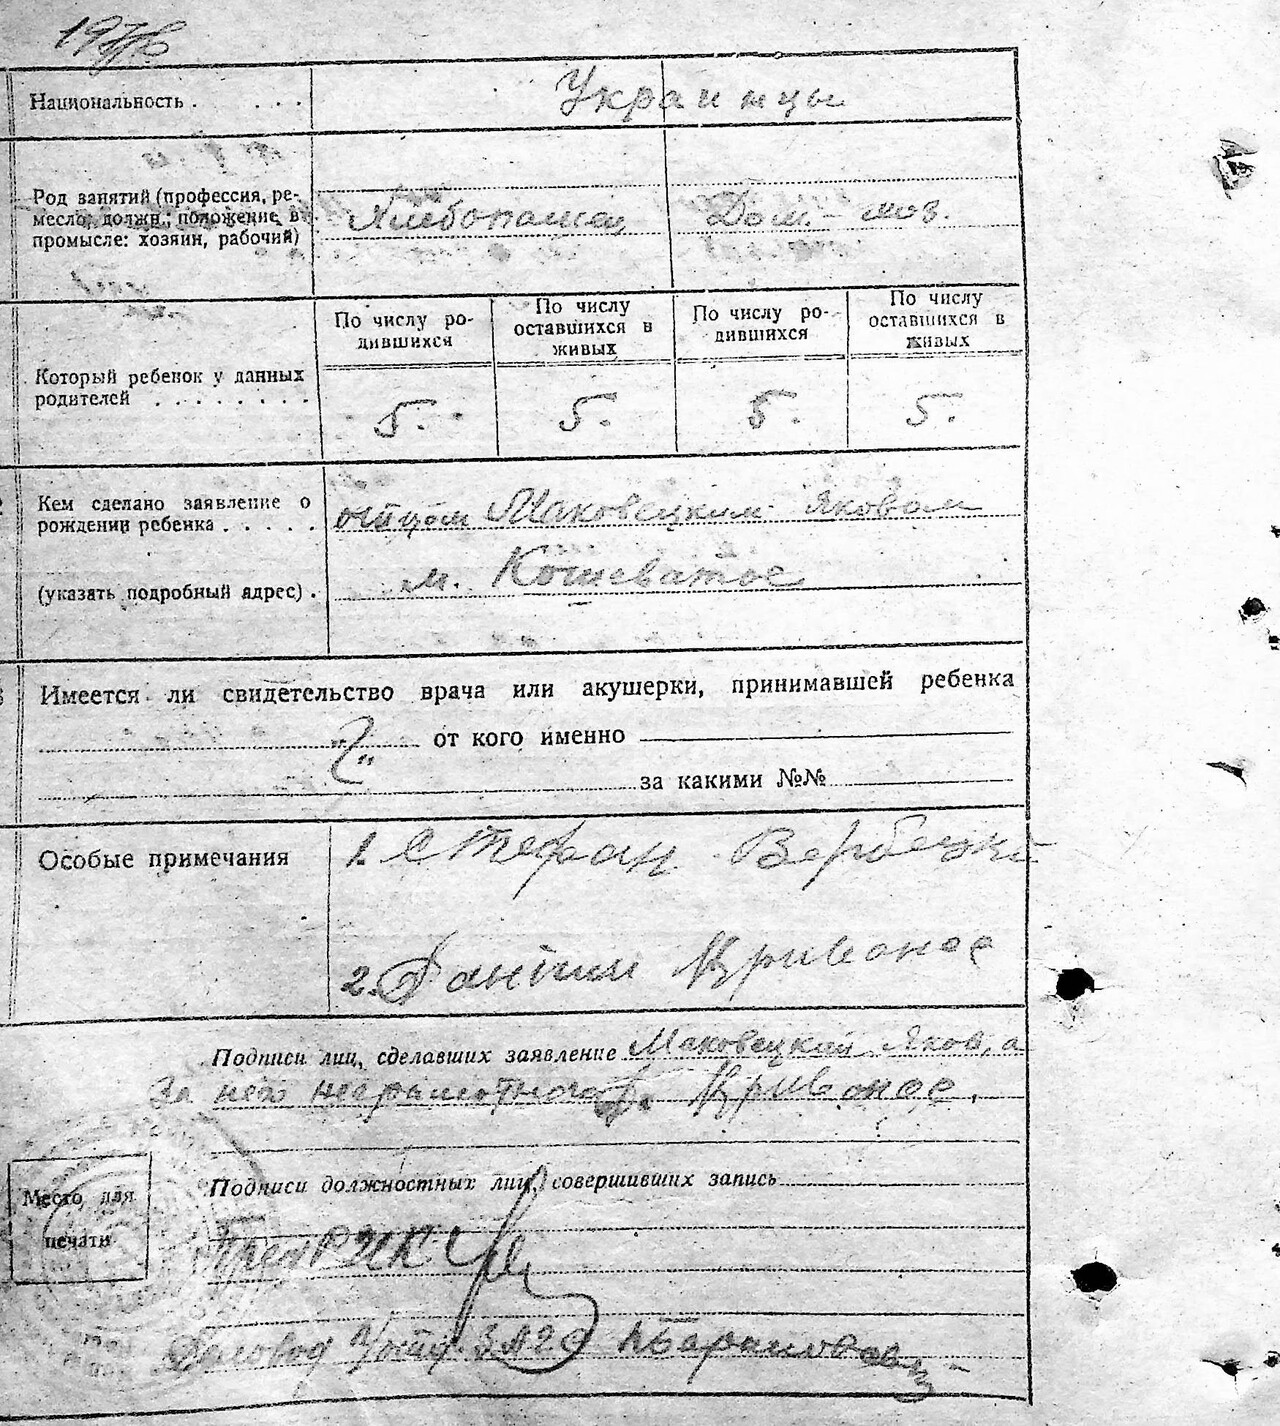 Национальность . . . . Украинцы
Род занятий (профессия, ре-
месло, должн.; положение в
промысле: хозяин, рабочий)
Хлебопашец Дом.
По числу ро-
дившихся
По числу
оставшихся в
живых
По числу ро-
дившихся
По числу
оставшихся в
живых
Который ребенок у данных
родителей . . . . . . . .
5. 5. 5. 5.
Кем сделано заявление о
рождении ребенка . . . . .
отцом Маковецким Яковом
(указать подробный адрес) .
м. Кошеватое
Имеется ли свидетельство врача или акушерки, принимавшей ребенка
от кого именно
за какими №№
Особые примечания
1. Стефан Вербецкий
2. Кривонос
Подписи лиц, сделавших заявление Маковецкий Яков, а
за него неграмотного Кривонос.
Подписи должностных лиц, совершивших запись
Место для
печати
ЗАГС